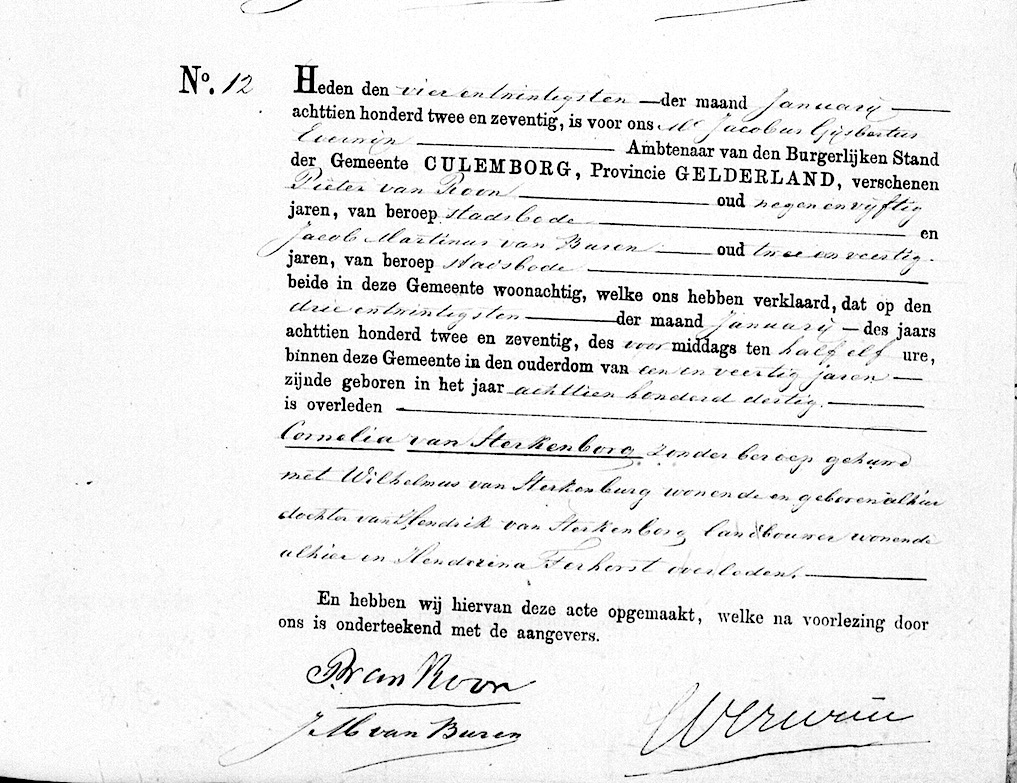 No. 12
Heden den vier entwintigsten der maand January
achttien honderd twee en zeventig, is voor ons Mr Jacobus Gijsbertus
Everwijn Ambtenaar van den Burgerlijken Stand
der Gemeente CULEMBORG, Provincie GELDERLAND, verschenen
Pieter van Roon oud negen en vyftig
jaren, van beroep stadsbode en
Jacob Martinus van Buren oud twee en veertig
jaren, van beroep stadsbode
beide in deze Gemeente woonachtig, welke ons hebben verklaard, dat op den
drie entwintigsten der maand January des jaars
achttien honderd twee en zeventig, des voormiddags ten half elf ure,
binnen deze Gemeente in den ouderdom van een en veertig jaren
zijnde geboren in het jaar achttien honderd dertig.
is overleden
Cornelia van Sterkenborg, zonder beroep gehuwd
met Wilhelmus van Sterkenburg wonende en geboren alhier
dochter van Hendrik van Sterkenborg landbouwer wonende
alhier en Henderina Terhorst overleden.
En hebben wij hiervan deze acte opgemaakt, welke na voorlezing door
ons is onderteekend met de aangevers.
P. van Roon
J M van Buren
Everwijn